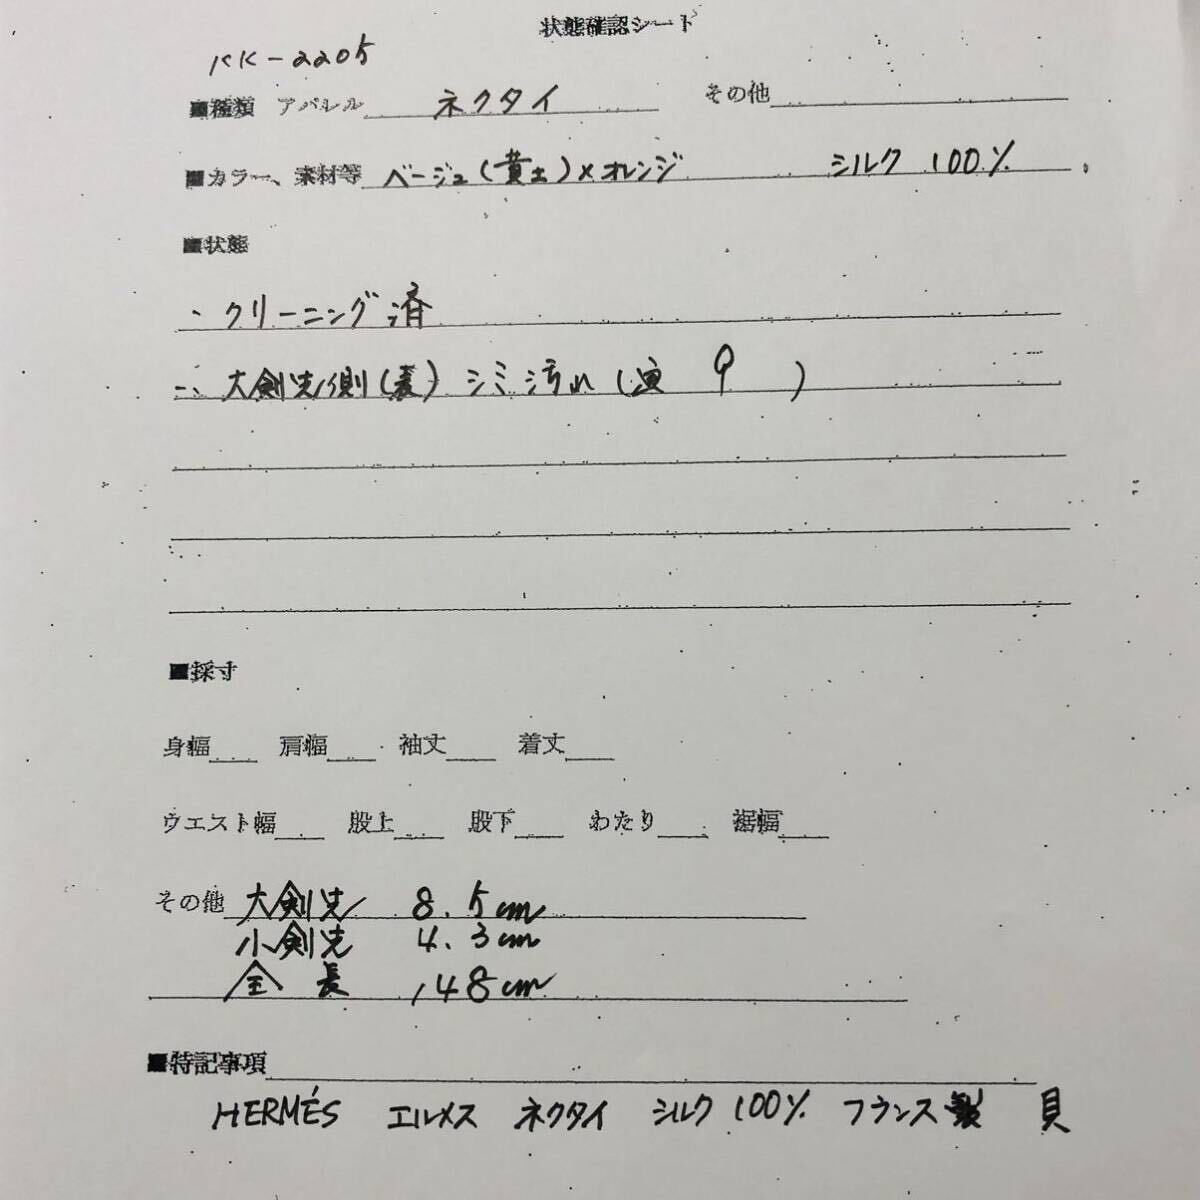 状態確認シート
KK-2205
■種類 アパレル ネクタイ その他
■カラー、素材等 ベージュ(黄土)×オレンジ シルク 100%
■状態
・クリーニング済
・大剣先側(裏) シミ汚れ(写 9 )
■採寸
身幅 肩幅 袖丈 着丈
ウエスト幅 股上 股下 わたり 裾幅
その他 大剣先 8.5cm
小剣先 4.3cm
全 長 148cm
■特記事項
HERMÉS エルメス ネクタイ シルク 100% フランス製 貝